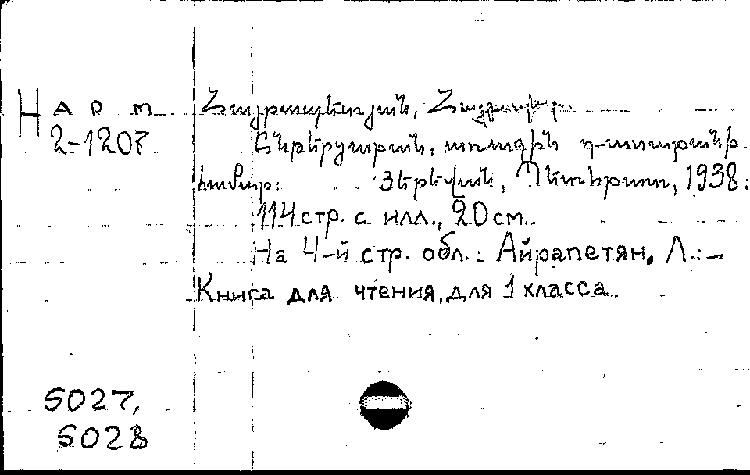 Нарм Հայրապետյան,
2-1207 Ընթերցարան, առաջին դասարանի
համար: Յերեվան, Պետհրատ, 1938.
114 стр. с илл., 20 см.
На 4-й стр. обл.: Айрапетян, Л.:-
Книга для чтения, для 1 класса.
5027,
5028